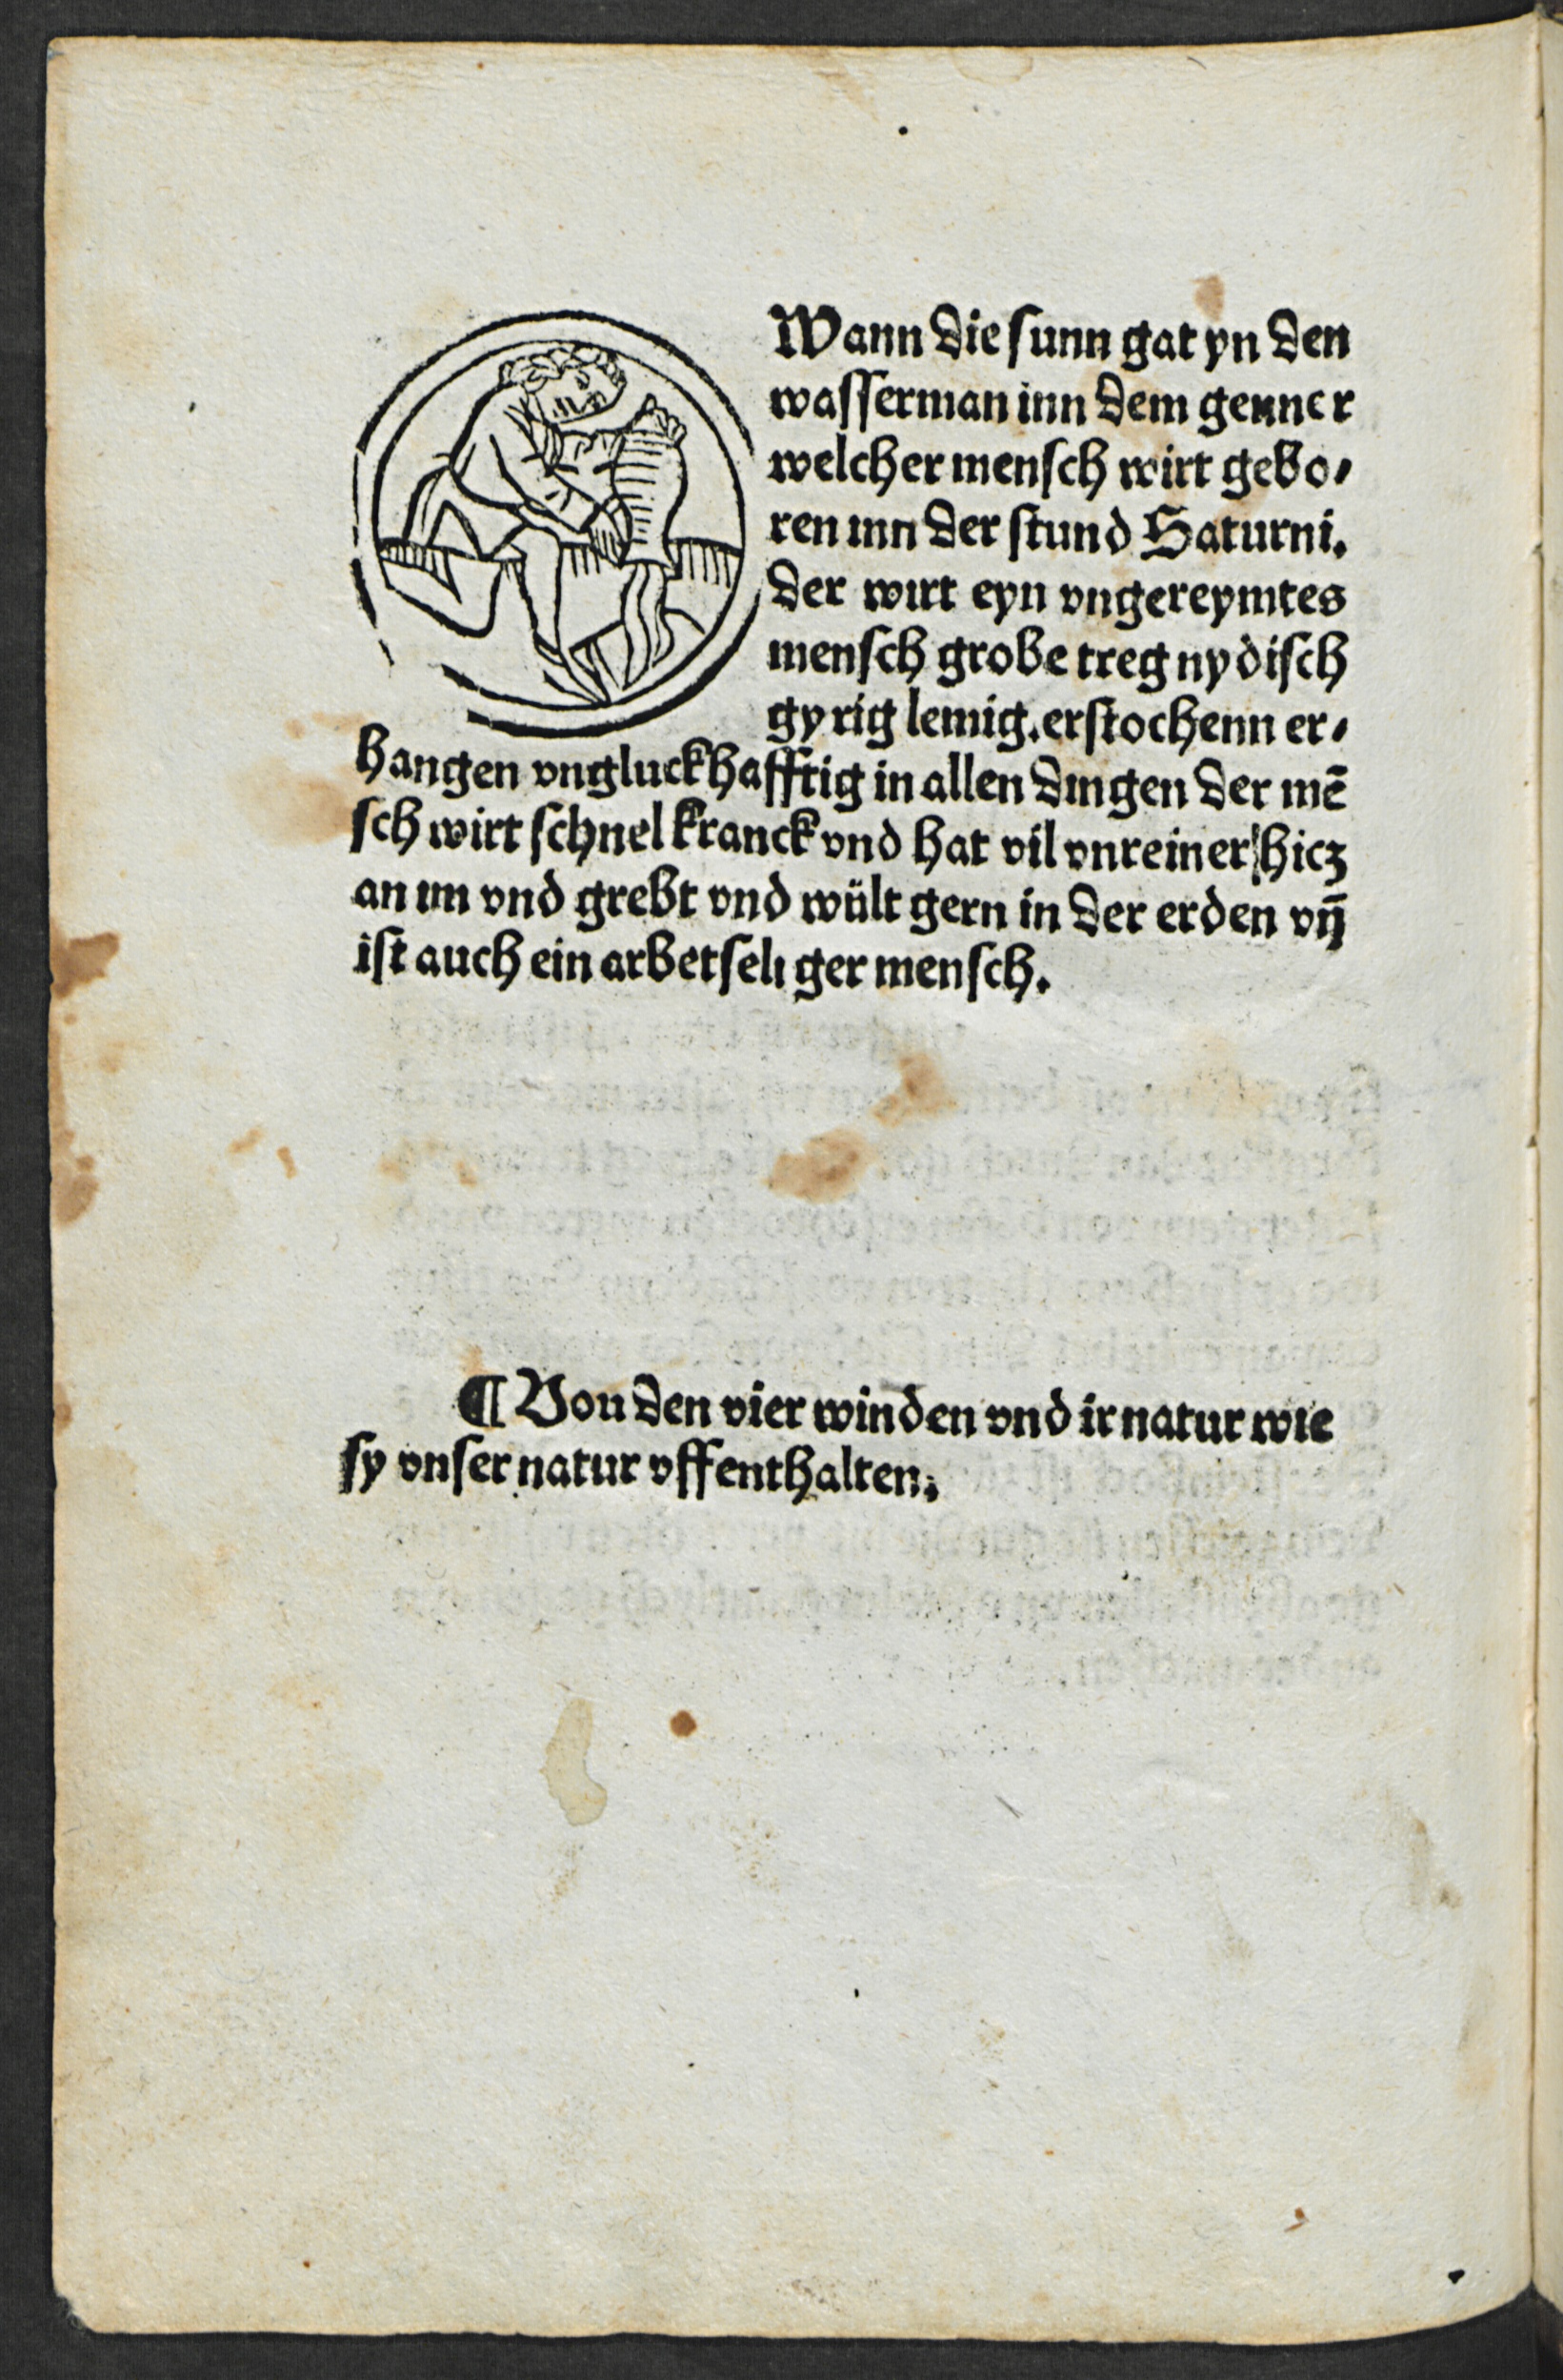 Wann die sunn gat yn den
wasserman inn dem genner
welcher mensch wirt gebo⸗
ren inn der stund Saturni.
der wirt eyn vngereymtes
mensch grobe treg nydisch
gyrig lemig. erstochenn er⸗
hangen vngluckhafftig in allen dingen der mē
sch wirt schnel kranck vnd hat vil vnreiner hicz
an im vnd grebt vnd wült gern in der erden vn̄
ist auch ein arbetseliger mensch.
¶ Von den vier winden vnd ir natur wie
sy vnser natur vffenthalten.